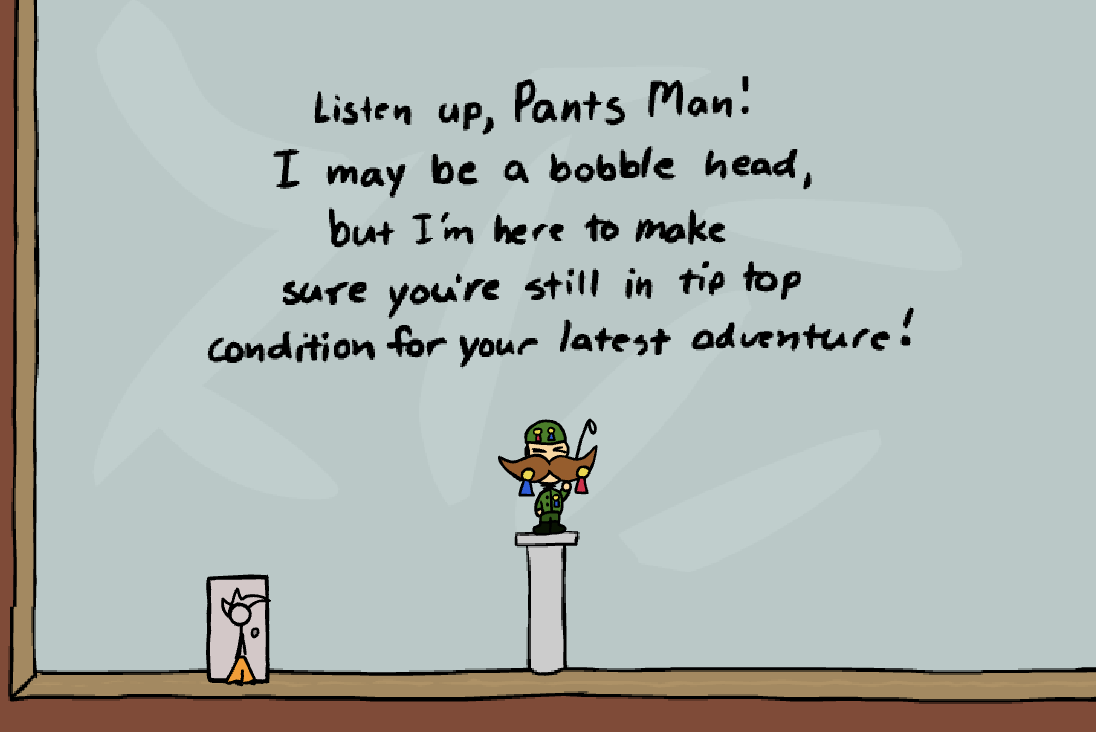 Listen up, Pants Man!
I may be a bobble head,
but I'm here to make
sure you're still in tip top
condition for your latest adventure!